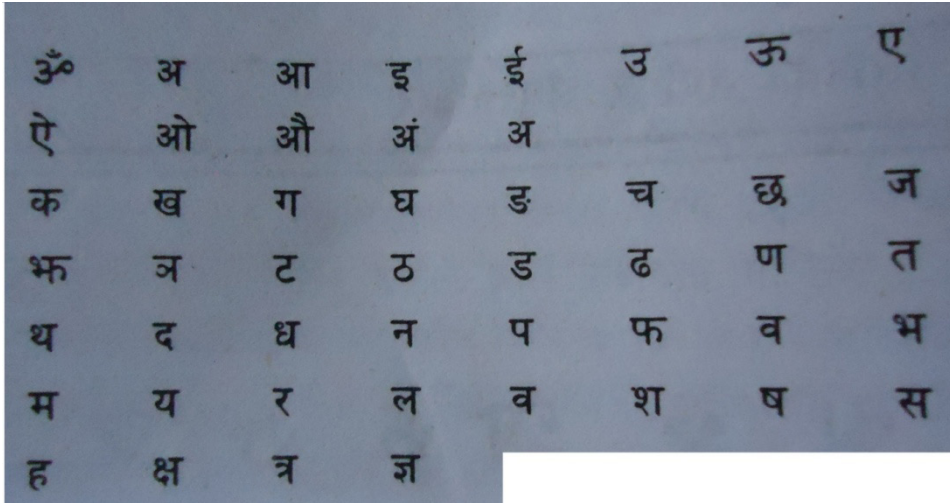 ॐ अ आ इ ई उ ऊ ए
ऐ ओ औ अं अ
क ख ग घ ङ च छ ज
झ ञ ट ठ ड ढ ण त
थ द ध न प फ व भ
म य र ल व श ष स
ह क्ष त्र ज्ञ